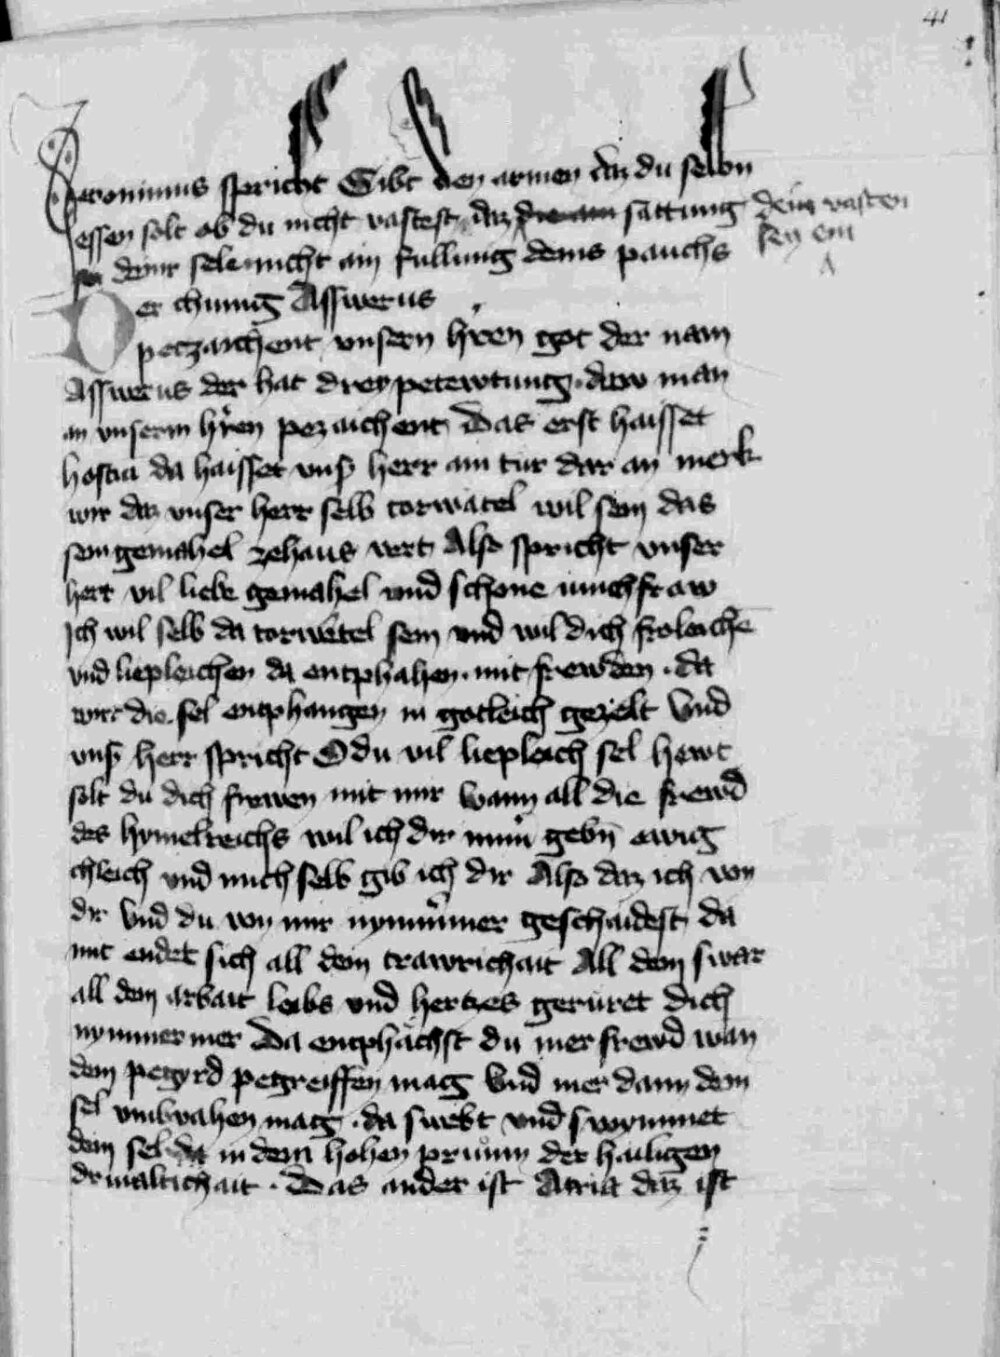 41
Jeronimus spricht Gibt den armen daz du selbn
essen solt ob du nicht vastest daz sattung dein vasten
sey ein
deinr sele nicht ain fullung deins pauchs
Der chunig Asswerus
petzaichent unsern h'ren got der nam
Asswerus der hat drey petewtung. daw man
an unserm h'ren pezaichent Das erst haisset
hostia da haisset uns' herr ain tur dar an merk
wir daz unser herr selb torwatel wil sein das
sein gemahel zehaus vert Also spricht unser
herr vil liebe gemahel und schone iunchfraw
Ich wil selb da torwetel sein und wil dich froleichē
und liepleichen da enphahen. mit frewden. da
wirt die sel enphangen in gotleich gezelt Und
uns' herr spricht O du vil liepleich sel hewt
solt du dich frewen mit mir wann all die frewd
des hymelreichs wil ich dir nim gebn ewig
chleich und mich selb gib ich dir Also daz ich von
dir Und du von mir nymmer geschaidest da
mit endet sich all dein trawrichait All dein swar
all dein arbait leibs und hertzes geruret dich
nymmermer Da enphachst du mer frewd wan
dein pegyrd pegreiffen mag Und mer dann dein
sel umbvahen mag. da swebt und swymmet
dein sel in dem hohen prunn der hailigen
drivaltichait. Das ander ist Atria daz ist